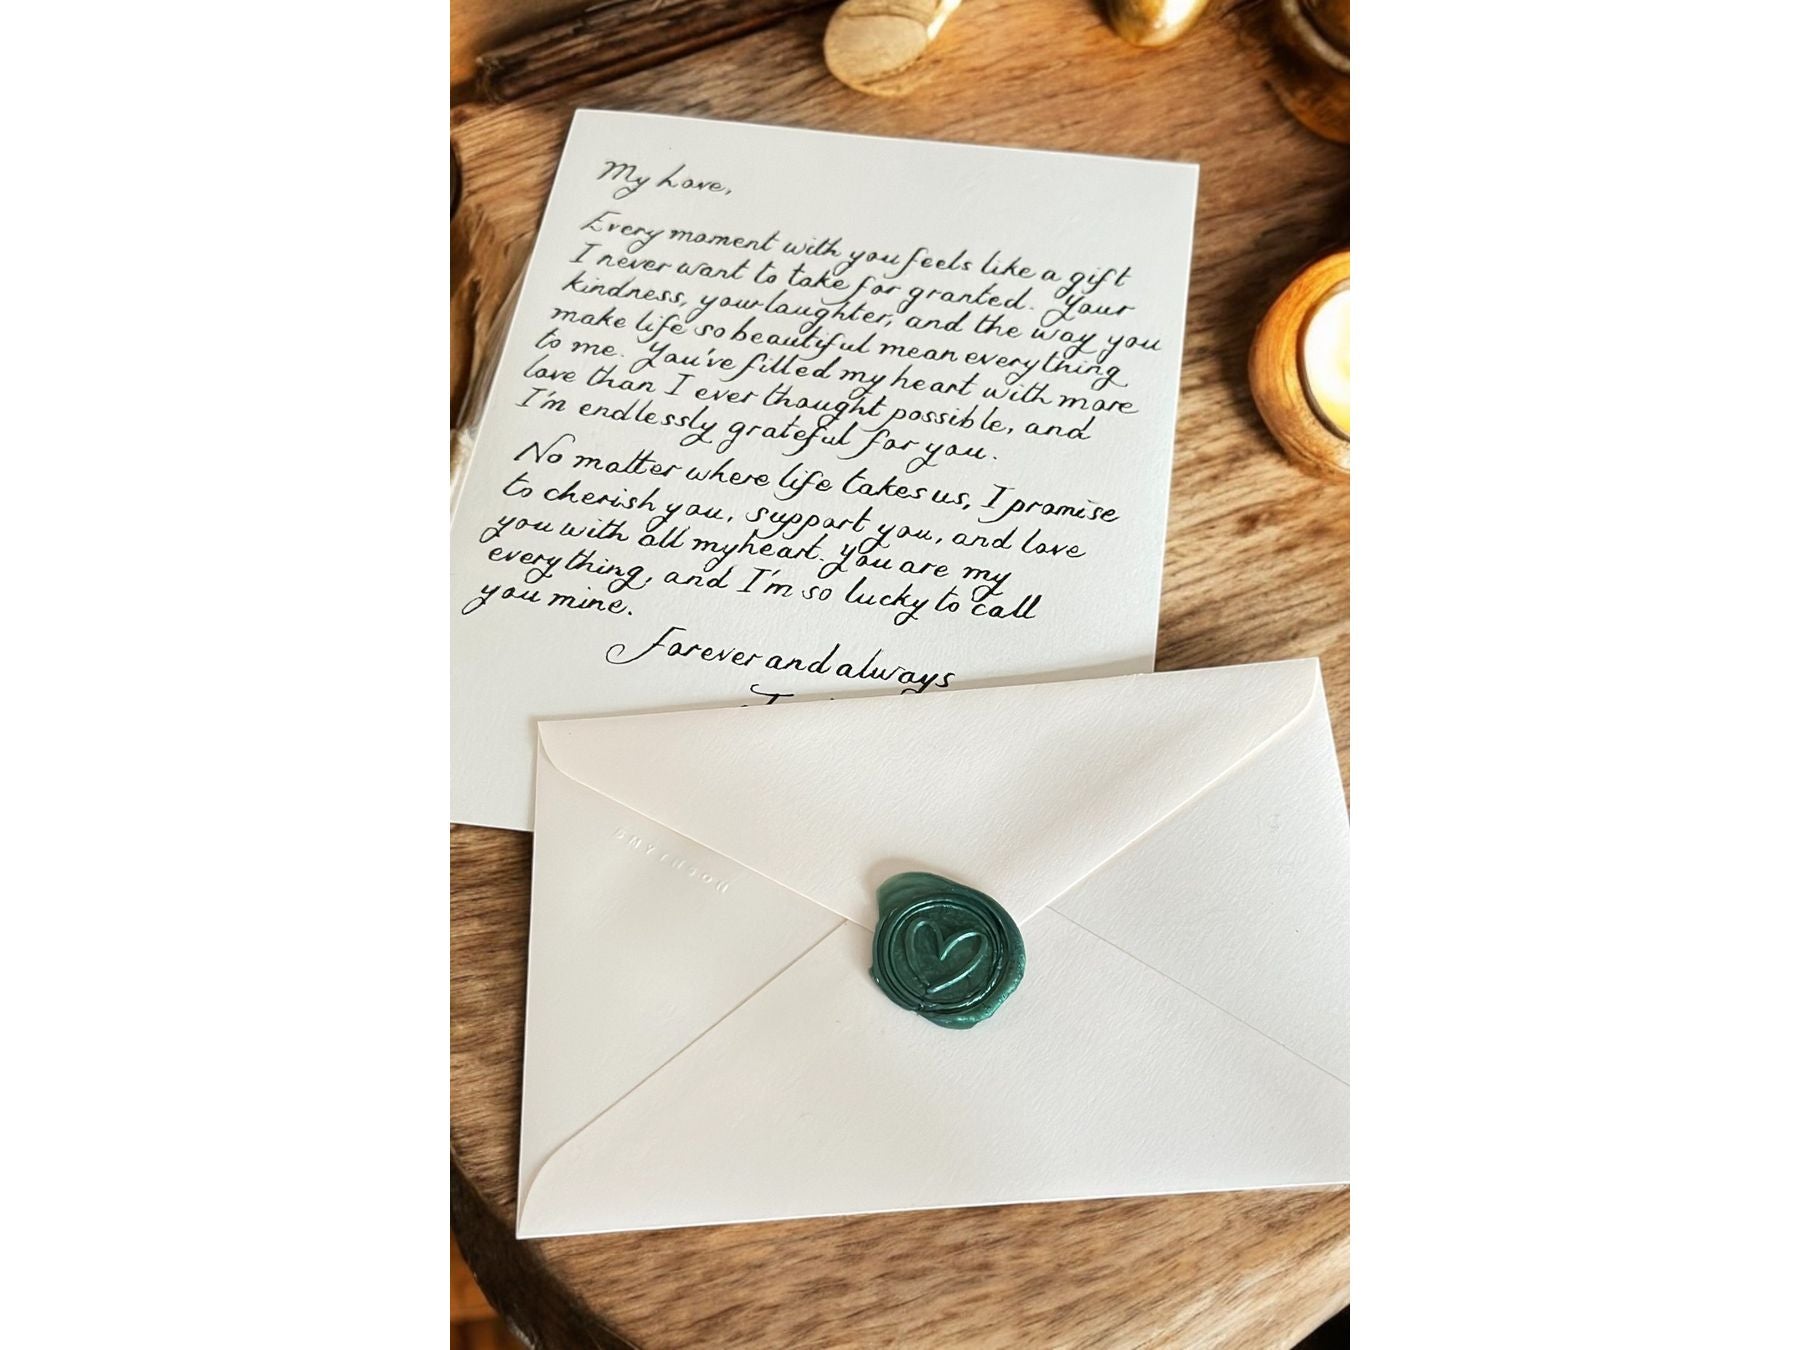 My Love,
Every moment with you feels like a gift
I never want to take for granted. Your
kindness, your laughter, and the way you
make life so beautiful mean everything
to me. You've filled my heart with more
love than I ever thought possible, and
I'm endlessly grateful for you.
No matter where life takes us, I promise
to cherish you, support you, and love
you with all my heart. You are my
everything, and I'm so lucky to call
you mine.
Forever and always